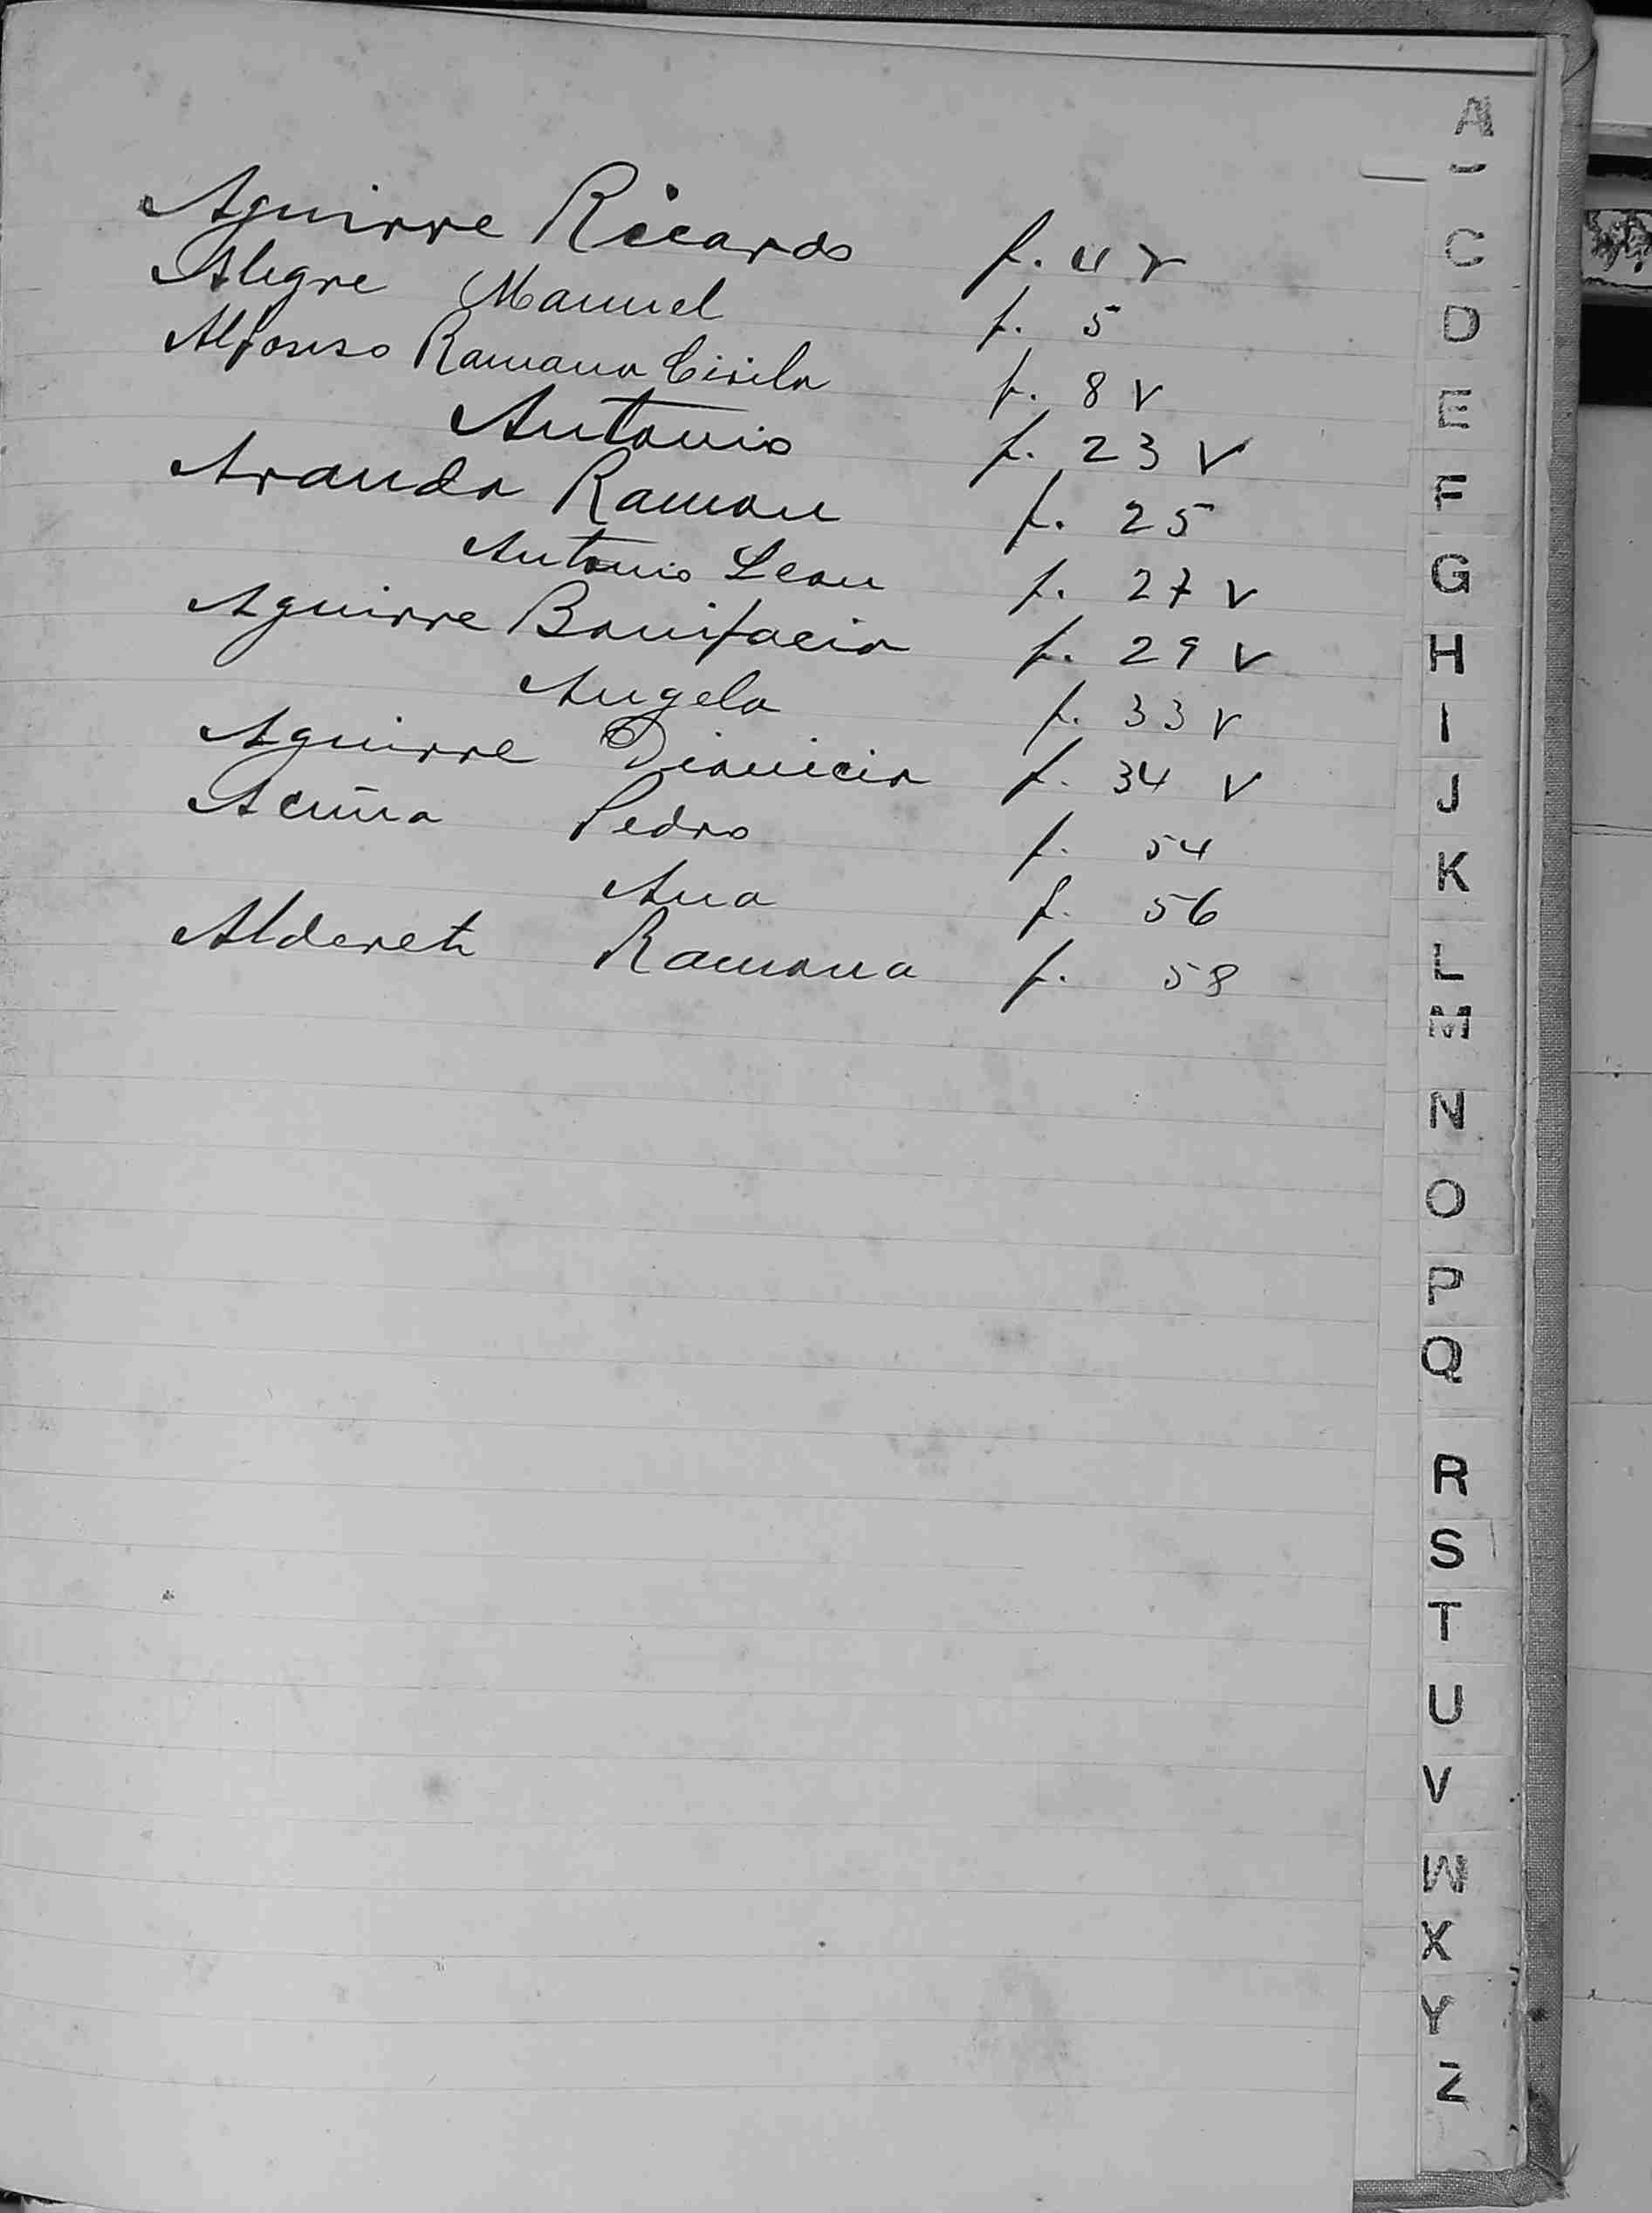 A
Aguirre Ricardo f. 4 v
Alegre Manuel f. 5
Alfonso Ramona Cirila f. 8 v
Antonio f. 23 v
Aranda Ramon f. 25
Antonio Leon f. 27 v
Aguirre Bonifacio f. 29 v
Angela f. 33 v
Aguirre Dionicio f. 34 v
Acuña Pedro f. 54
Ana f. 56
Alderete Ramona f. 58
C
D
E
F
G
H
I
J
K
L
M
N
O
P
Q
R
S
T
U
V
W
X
Y
Z